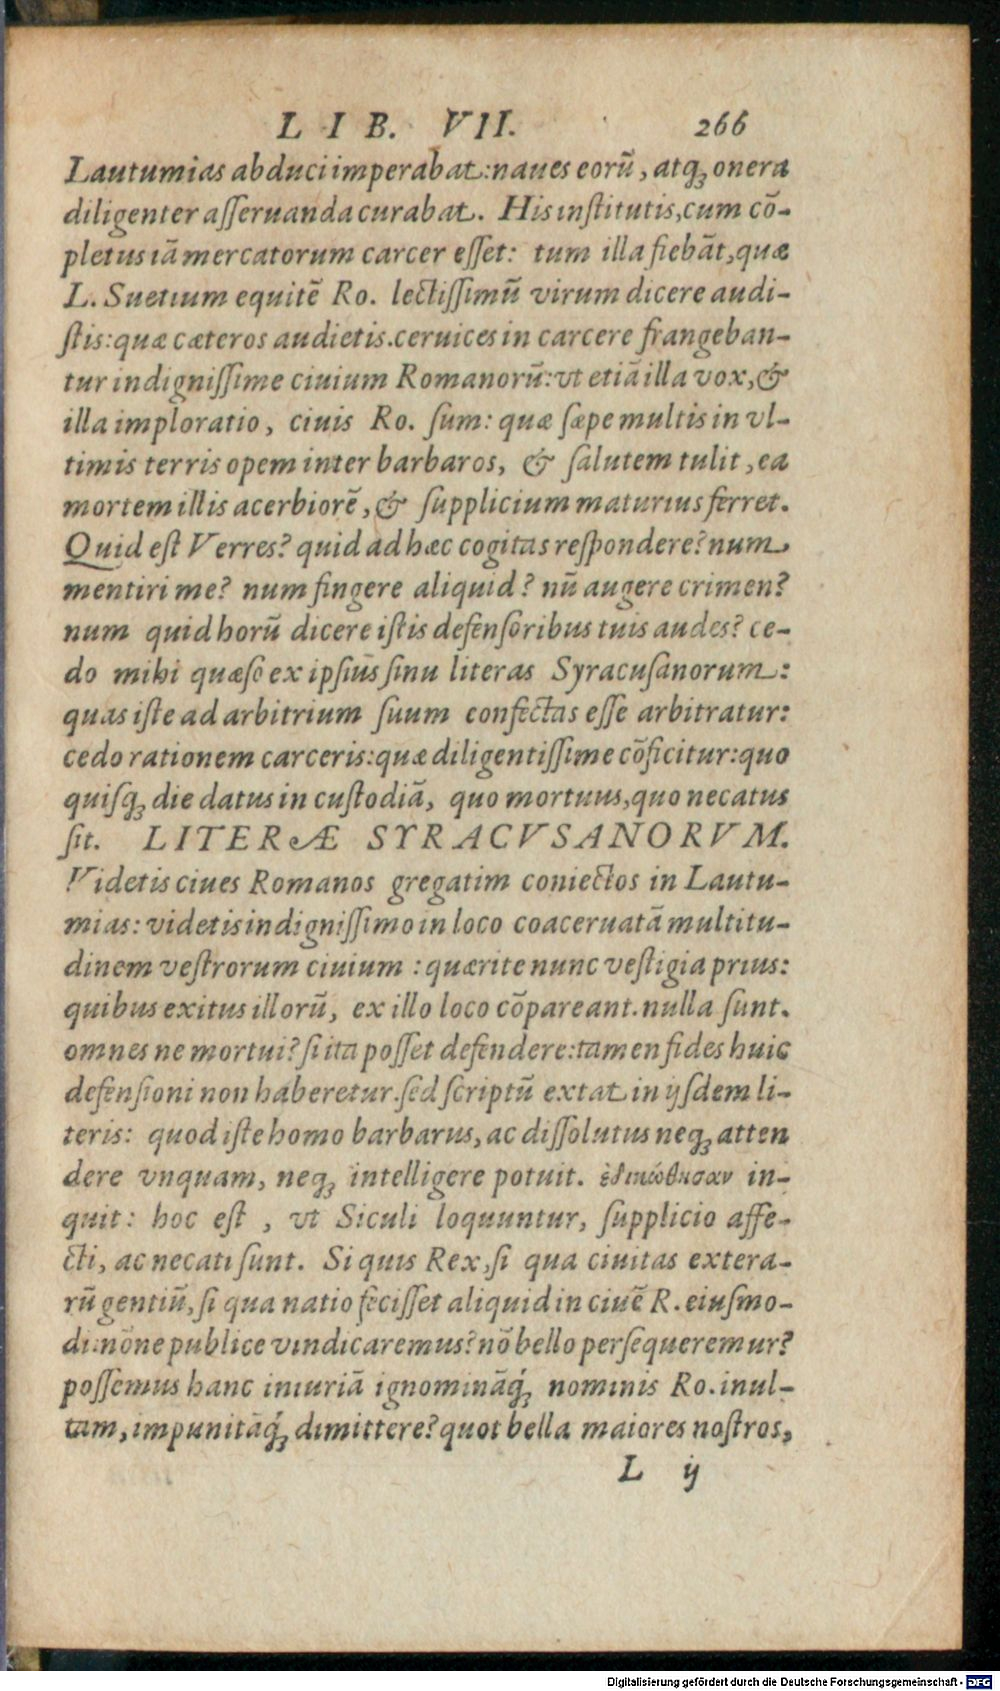 LIB. VII. 266
Lautumias abduci imperabat: naues eorũ, atq; onera
diligenter aſſeruanda curabat. His inſtitutis, cum cõ-
pletus iã mercatorum carcer eſſet: tum illa fiebãt, quæ
L. Suetium equitẽ Ro. lectiſſimũ virum dicere audi-
ſtis: quæ cæteros audietis. ceruices in carcere frangeban-
tur indigniſſime ciuium Romanorũ: vt etiã illa vox, &
illa imploratio, ciuis Ro. ſum: quæ ſæpe multis in vl-
timis terris opem inter barbaros, & ſalutem tulit, ea
mortem illis acerbiorẽ, & ſupplicium maturius ferret.
Quid eſt Verres? quid ad hæc cogitas reſpondere? num
mentiri me? num fingere aliquid? nũ augere crimen?
num quid horũ dicere iſtis defenſoribus tuis audes? ce-
do mihi quæſo ex ipſius ſinu literas Syracuſanorum:
quas iſte ad arbitrium ſuum confectas eſſe arbitratur:
cedo rationem carceris: quæ diligentiſſime cõficitur: quo
quiſq; die datus in cuſtodiã, quo mortuus, quo necatus
ſit. LITERÆ SYRACVSANORVM.
Videtis ciues Romanos gregatim coniectos in Lautu-
mias: videtis indigniſſimo in loco coaceruatã multitu-
dinem veſtrorum ciuium: quærite nunc veſtigia prius:
quibus exitus illorũ, ex illo loco cõpareant. nulla ſunt.
omnes ne mortui? ſi ita poſſet defendere: tamen fides huic
defenſioni non haberetur. ſed ſcriptũ extat in ijſdem li-
teris: quod iſte homo barbarus, ac diſſolutus neq; atten
dere vnquam, neq; intelligere potuit. ἐδικαιώθησαν in-
quit: hoc eſt, vt Siculi loquuntur, ſupplicio affe-
cti, ac necati ſunt. Si quis Rex, ſi qua ciuitas extera-
rũ gentiũ, ſi qua natio feciſſet aliquid in ciuẽ R. eiuſmo-
di: nõne publice vindicaremus? nõ bello perſequeremur?
poſſemus hanc iniuriã ignominãq́; nominis Ro. inul-
tam, impunitãq́; dimittere? quot bella maiores noſtros,
L ij
Digitalisierung gefördert durch die Deutsche Forschungsgemeinschaft - DFG